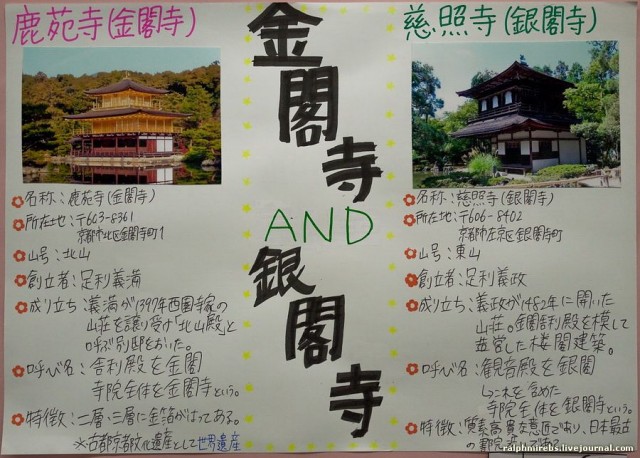 鹿苑寺(金閣寺)
名称：鹿苑寺(金閣寺)
所在地：〒603-8361
京都市北区金閣寺町1
山号：北山
創立者：足利義満
成り立ち：義満が1397年西園寺家の
山荘を譲り受け「北山殿」と
呼ぶ別邸をおいた。
呼び名：舎利殿を金閣
寺院全体を金閣寺という。
特徴：二層・三層に金箔がはってある。
※古都京都文化遺産として世界遺産
金閣寺
AND
銀閣寺
慈照寺(銀閣寺)
名称：慈照寺(銀閣寺)
所在地：〒606-8402
京都市左京区銀閣寺町
山号：東山
創立者：足利義政
成り立ち：義政が1482年に開いた
山荘。金閣舎利殿を模して
造営した楼閣建築。
呼び名：観音殿を銀閣
これを含めた
寺院全体を銀閣寺という。
特徴：質素高貴な意匠であり、日本最古
ralphmirebs.livejournal.com